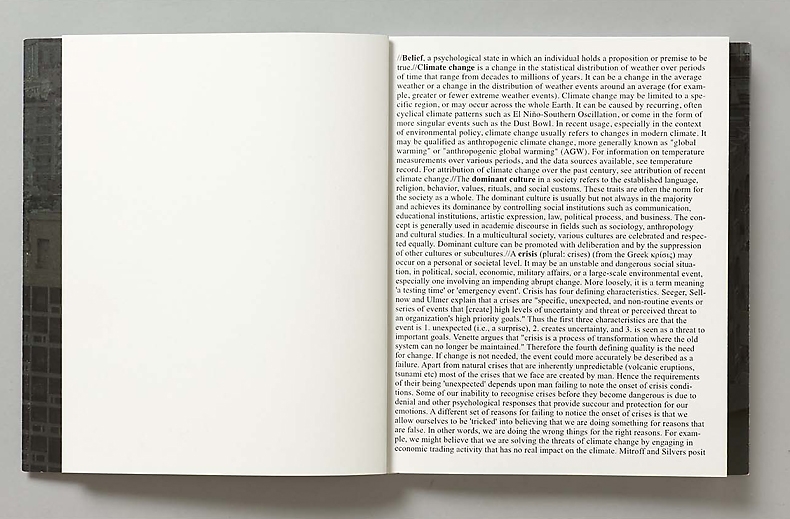 //Belief, a psychological state in which an individual holds a proposition or premise to be
true.//Climate change is a change in the statistical distribution of weather over periods
of time that range from decades to millions of years. It can be a change in the average
weather or a change in the distribution of weather events around an average (for exam-
ple, greater or fewer extreme weather events). Climate change may be limited to a spe-
cific region, or may occur across the whole Earth. It can be caused by recurring, often
cyclical climate patterns such as El Niño-Southern Oscillation, or come in the form of
more singular events such as the Dust Bowl. In recent usage, especially in the context
of environmental policy, climate change usually refers to changes in modern climate. It
may be qualified as anthropogenic climate change, more generally known as "global
warming" or "anthropogenic global warming" (AGW). For information on temperature
measurements over various periods, and the data sources available, see temperature
record. For attribution of climate change over the past century, see attribution of recent
climate change.//The dominant culture in a society refers to the established language,
religion, behavior, values, rituals, and social customs. These traits are often the norm for
the society as a whole. The dominant culture is usually but not always in the majority
and achieves its dominance by controlling social institutions such as communication,
educational institutions, artistic expression, law, political process, and business. The con-
cept is generally used in academic discourse in fields such as sociology, anthropology
and cultural studies. In a multicultural society, various cultures are celebrated and respec-
ted equally. Dominant culture can be promoted with deliberation and by the suppression
of other cultures or subcultures.//A crisis (plural: crises) (from the Greek κρίσις) may
occur on a personal or societal level. It may be an unstable and dangerous social situa-
tion, in political, social, economic, military affairs, or a large-scale environmental event,
especially one involving an impending abrupt change. More loosely, it is a term meaning
'a testing time' or 'emergency event'. Crisis has four defining characteristics. Seeger, Sell-
now and Ulmer explain that a crises are "specific, unexpected, and non-routine events or
series of events that [create] high levels of uncertainty and threat or perceived threat to
an organization's high priority goals." Thus the first three characteristics are that the
event is 1. unexpected (i.e., a surprise), 2. creates uncertainty, and 3. is seen as a threat to
important goals. Venette argues that "crisis is a process of transformation where the old
system can no longer be maintained." Therefore the fourth defining quality is the need
for change. If change is not needed, the event could more accurately be described as a
failure. Apart from natural crises that are inherently unpredictable (volcanic eruptions,
tsunami etc) most of the crises that we face are created by man. Hence the requirements
of their being 'unexpected' depends upon man failing to note the onset of crisis condi-
tions. Some of our inability to recognise crises before they become dangerous is due to
denial and other psychological responses that provide succour and protection for our
emotions. A different set of reasons for failing to notice the onset of crises is that we
allow ourselves to be 'tricked' into believing that we are doing something for reasons that
are false. In other words, we are doing the wrong things for the right reasons. For exam-
ple, we might believe that we are solving the threats of climate change by engaging in
economic trading activity that has no real impact on the climate. Mitroff and Silvers posit